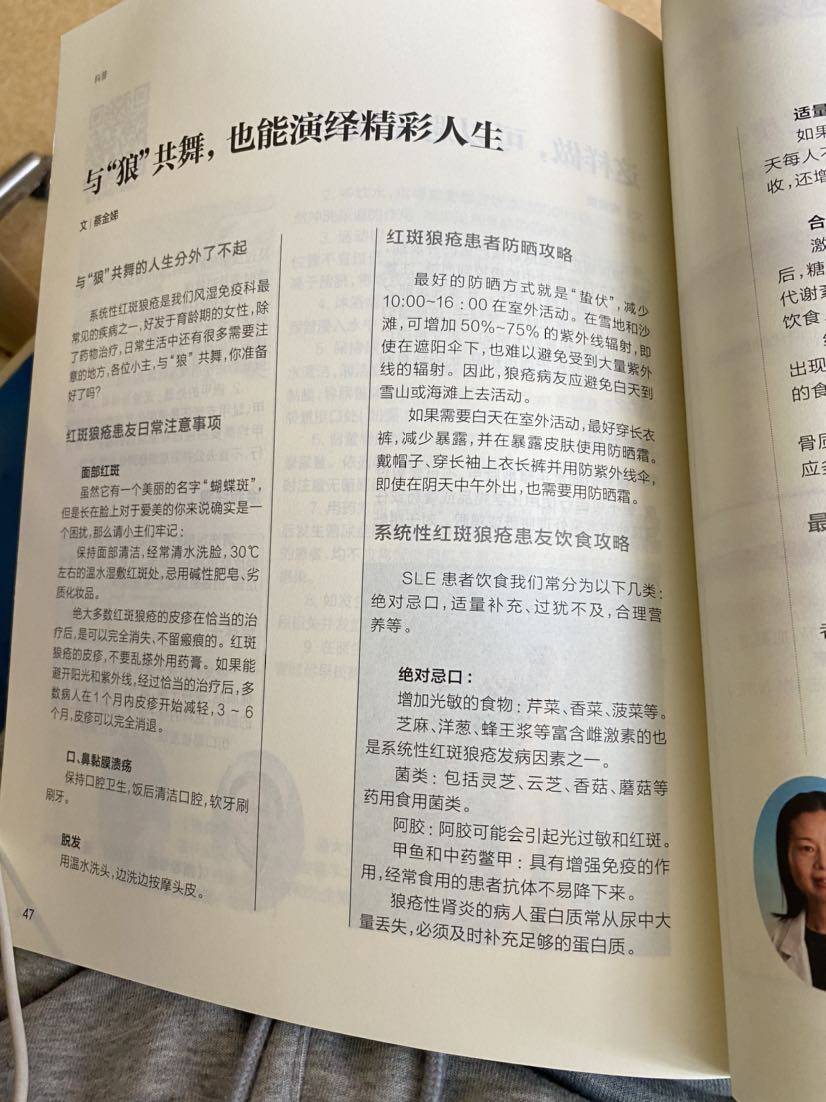 科普
与“狼”共舞，也能演绎精彩人生
文|蔡金娣
与“狼”共舞的人生分外了不起
系统性红斑狼疮是我们风湿免疫科最
常见的疾病之一，好发于育龄期的女性，除
了药物治疗，日常生活中还有很多需要注
意的地方，各位小主，与“狼”共舞，你准备
好了吗？
红斑狼疮患友日常注意事项
面部红斑
虽然它有一个美丽的名字“蝴蝶斑”，
但是长在脸上对于爱美的你来说确实是一
个困扰，那么请小主们牢记：
保持面部清洁，经常清水洗脸，30℃
左右的温水湿敷红斑处，忌用碱性肥皂、劣
质化妆品。
绝大多数红斑狼疮的皮疹在恰当的治
疗后，是可以完全消失、不留瘢痕的。红斑
狼疮的皮疹，不要乱搽外用药膏。如果能
避开阳光和紫外线，经过恰当的治疗后，多
数病人在1个月内皮疹开始减轻，3～6
个月，皮疹可以完全消退。
口、鼻黏膜溃疡
保持口腔卫生，饭后清洁口腔，软牙刷
刷牙。
脱发
用温水洗头，边洗边按摩头皮。
47
红斑狼疮患者防晒攻略
最好的防晒方式就是“蛰伏”，减少
10:00~16：00在室外活动。在雪地和沙
滩，可增加50%~75%的紫外线辐射，即
使在遮阳伞下，也难以避免受到大量紫外
线的辐射。因此，狼疮病友应避免白天到
雪山或海滩上去活动。
如果需要白天在室外活动，最好穿长衣
裤，减少暴露，并在暴露皮肤使用防晒霜。
戴帽子、穿长袖上衣长裤并用防紫外线伞，
即使在阴天中午外出，也需要用防晒霜。
系统性红斑狼疮患友饮食攻略
SLE患者饮食我们常分为以下几类：
绝对忌口，适量补充、过犹不及，合理营
养等。
绝对忌口：
增加光敏的食物：芹菜、香菜、菠菜等。
芝麻、洋葱、蜂王浆等富含雌激素的也
是系统性红斑狼疮发病因素之一。
菌类：包括灵芝、云芝、香菇、蘑菇等
药用食用菌类。
阿胶：阿胶可能会引起光过敏和红斑。
甲鱼和中药鳖甲：具有增强免疫的作
用，经常食用的患者抗体不易降下来。
狼疮性肾炎的病人蛋白质常从尿中大
量丢失，必须及时补充足够的蛋白质。
适量
如果
天每人不
收，还增
合
激
后，糖
代谢紊
饮食
出现
的食
骨质
应多
最